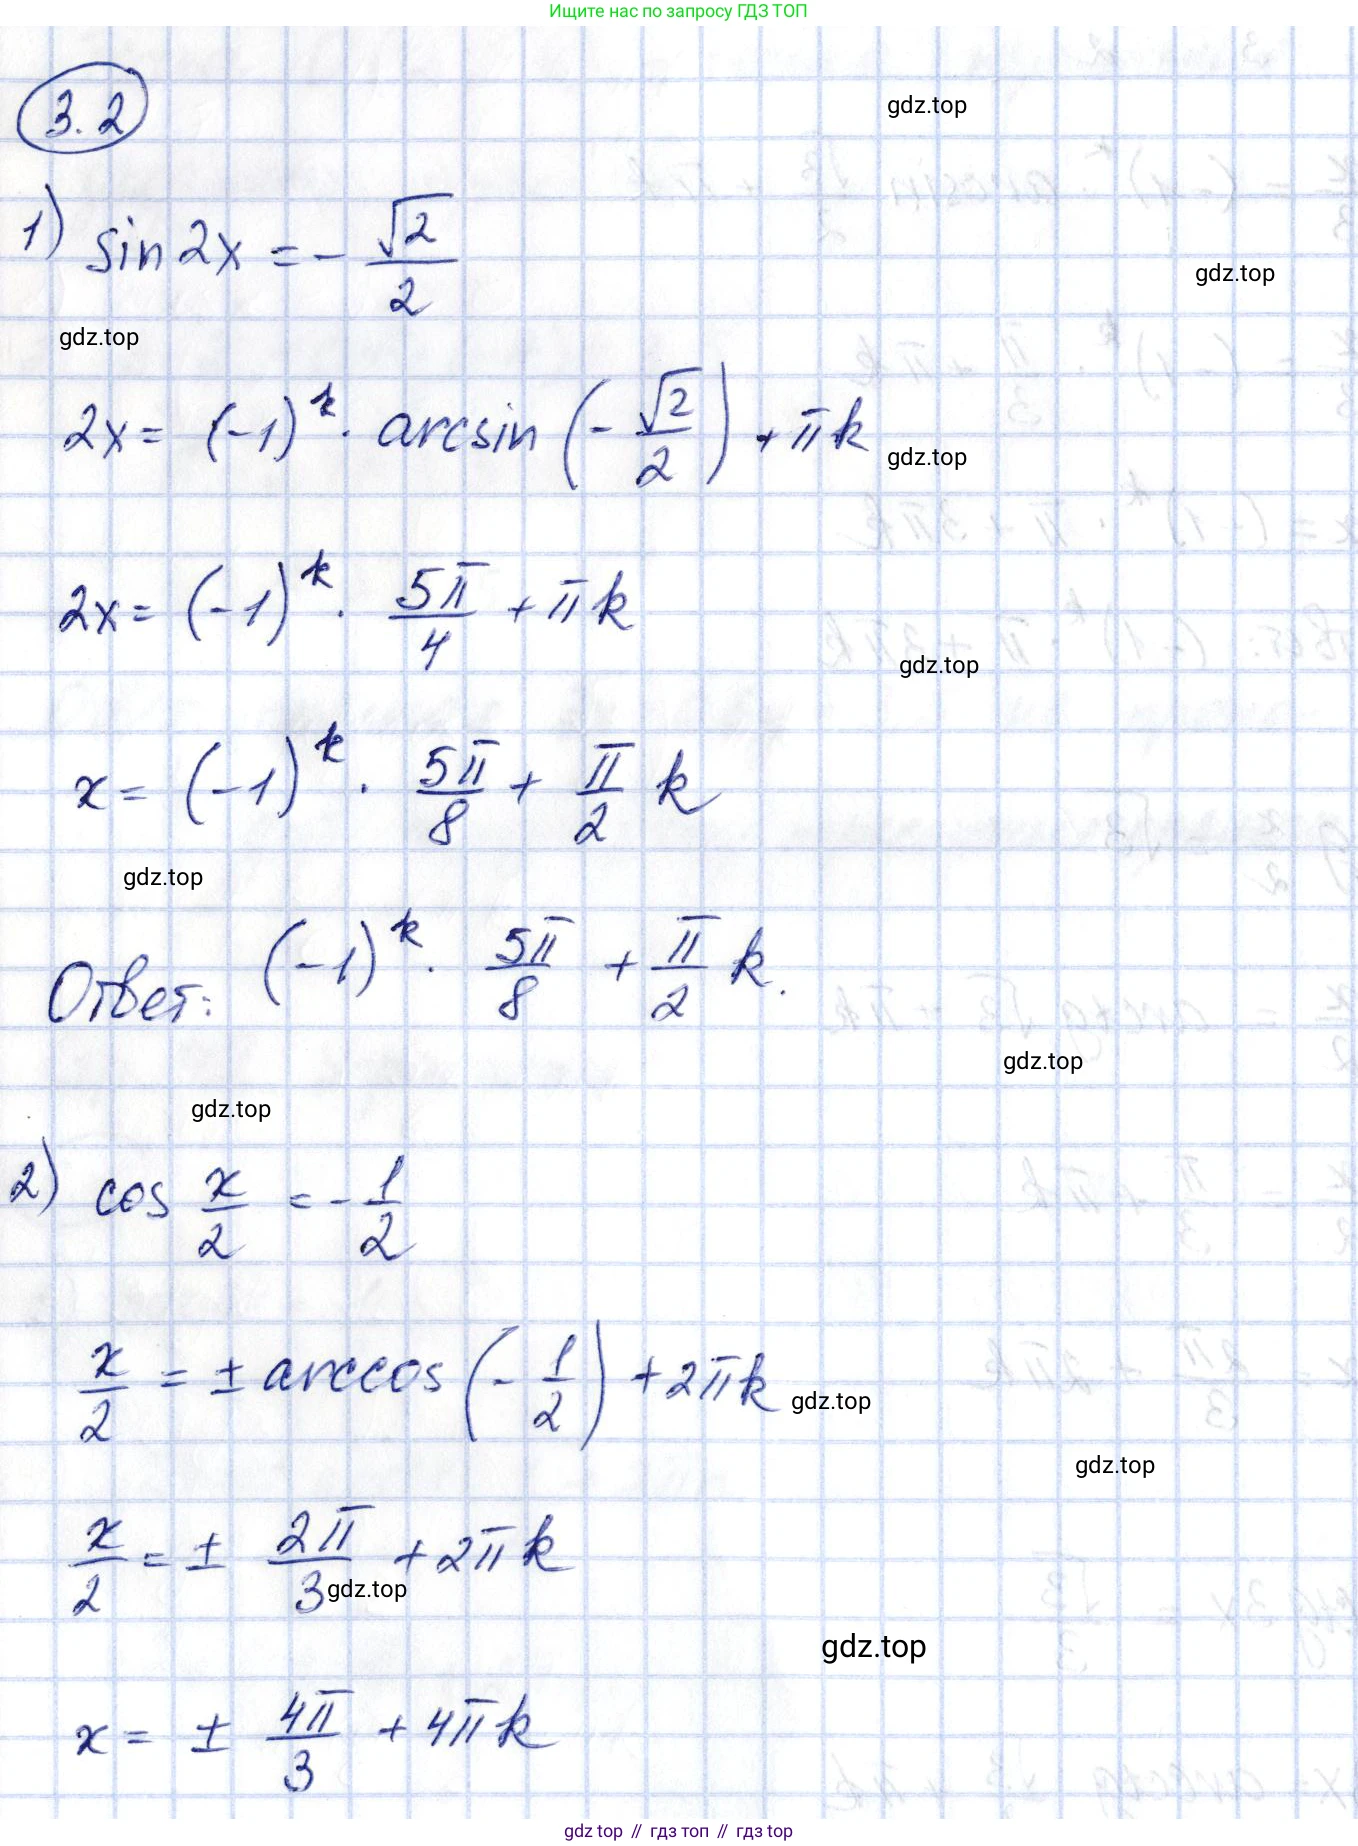 Ищите нас по запросу ГДЗ ТОП
3.2
gdz.top
1) sin 2x = - √2/2
gdz.top
gdz.top
2x = (-1)^k · arcsin (- √2/2) + πk
gdz.top
2x = (-1)^k · 5π/4 + πk
gdz.top
x = (-1)^k · 5π/8 + π/2 k
gdz.top
Ответ: (-1)^k · 5π/8 + π/2 k.
gdz.top
gdz.top
2) cos x/2 = - 1/2
x/2 = ± arccos (- 1/2) + 2πk
gdz.top
gdz.top
x/2 = ± 2π/3 + 2πk
gdz.top
gdz.top
x = ± 4π/3 + 4πk
gdz.top // гдз топ // gdz top